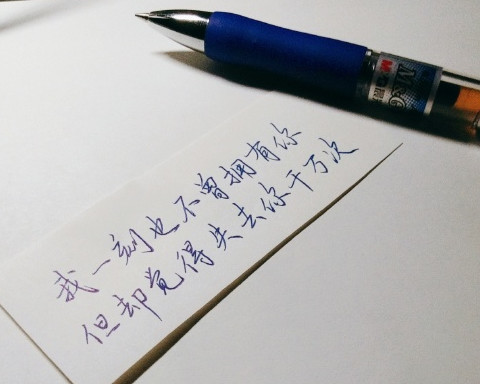 我一刻也不曾拥有你
但却觉得失去你千万次
M&G